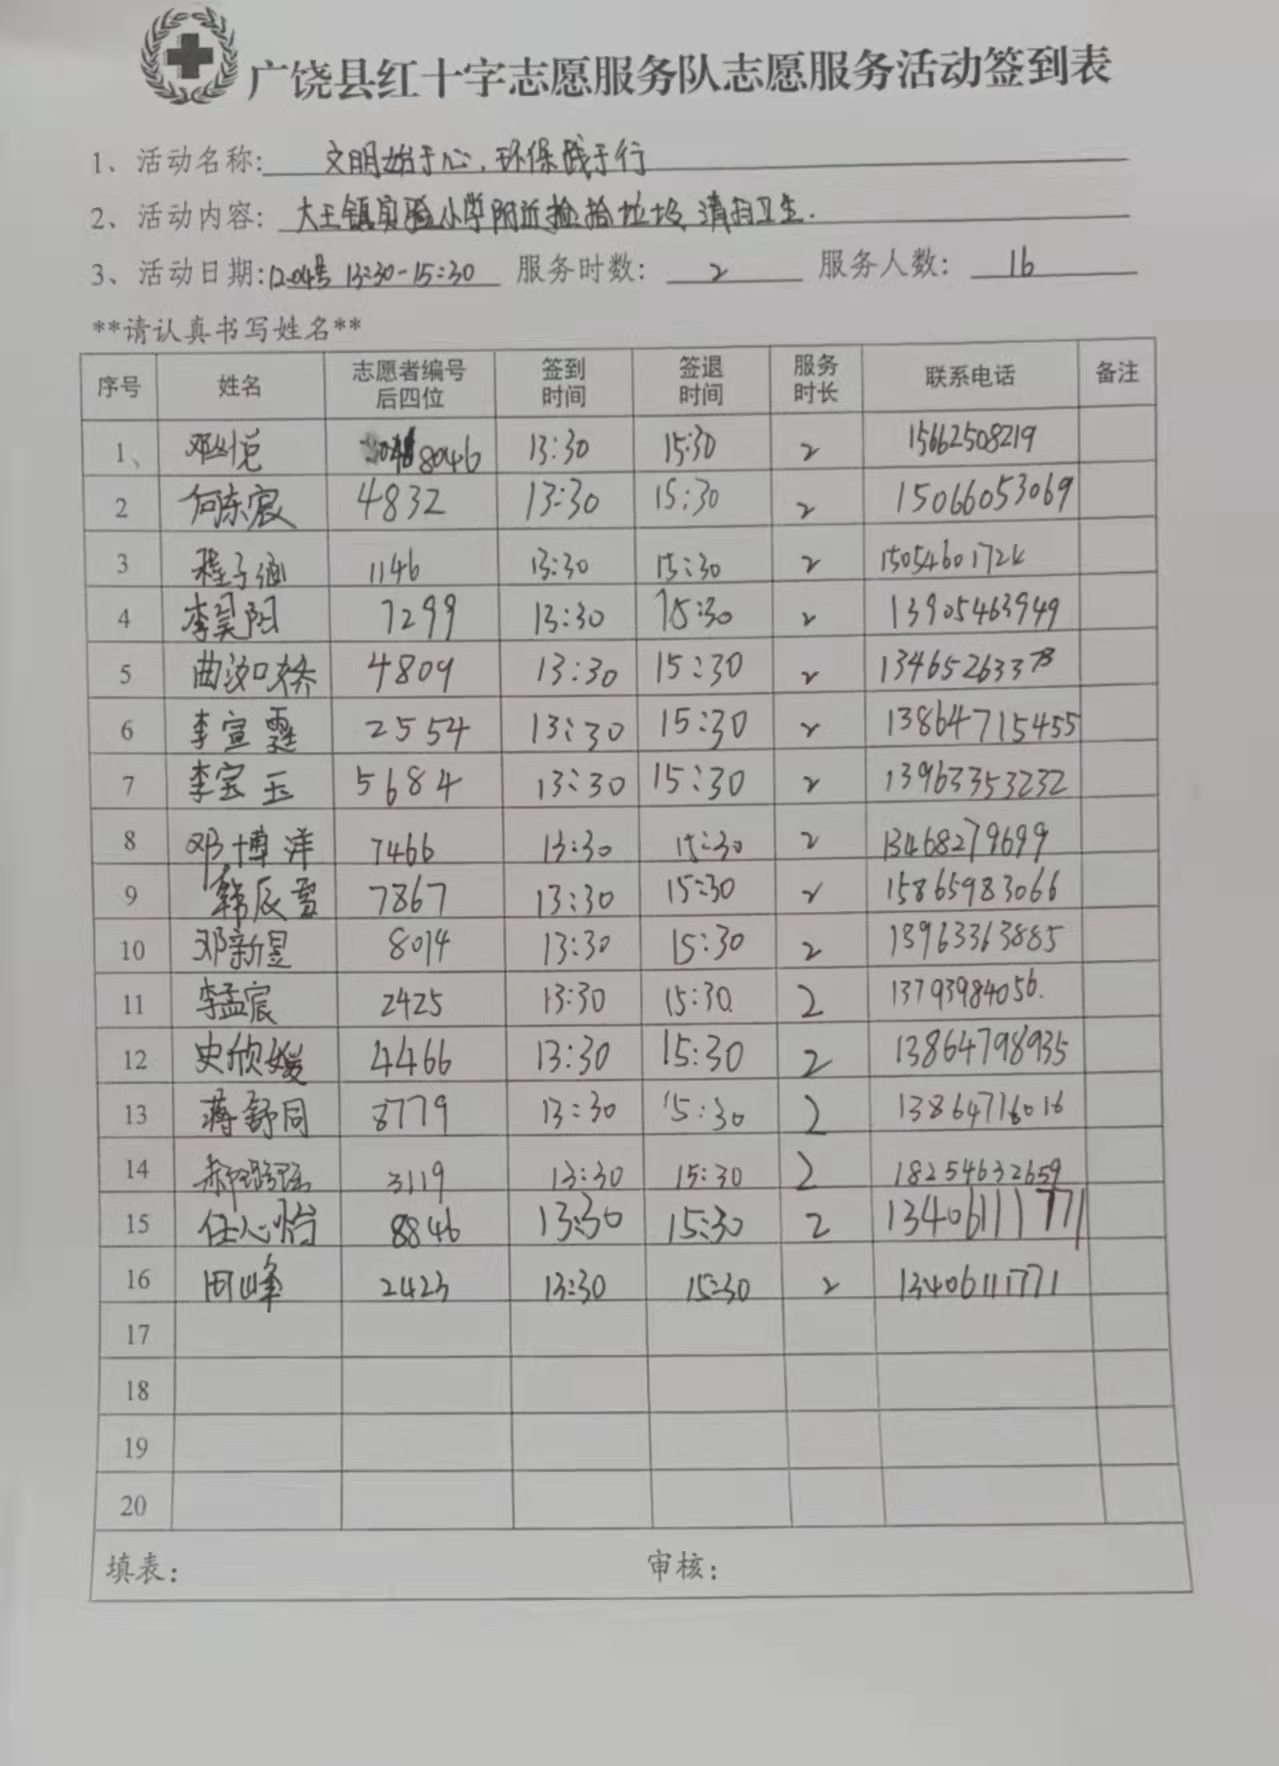 广饶县红十字志愿服务队志愿服务活动签到表
1、活动名称: 文明始于心,环保践于行
2、活动内容: 大王镇实验小学附近捡拾垃圾、清扫卫生.
3、活动日期:12.04号 13:30-15:30 服务时数: 2 服务人数: 16
**请认真书写姓名**
序号 姓名 志愿者编号后四位 签到时间 签退时间 服务时长 联系电话 备注
1、 邓悦 8046 13:30 15:30 2 15662508219
2 何东宸 4832 13:30 15:30 2 15066053069
3 程子涵 1146 13:30 15:30 2 1505460172
4 李昊阳 7299 13:30 15:30 2 13905463949
5 曲汝娇 4809 13:30 15:30 2 13465263373
6 李宣霆 2554 13:30 15:30 2 13864715455
7 李宝玉 5684 13:30 15:30 2 13963353232
8 邓博洋 7466 13:30 15:30 2 13468279699
9 韩辰雪 7867 13:30 15:30 2 15865983066
10 邓新昱 8014 13:30 15:30 2 13963363885
11 李孟宸 2425 13:30 15:30 2 13793984056.
12 史欣媛 4466 13:30 15:30 2 13864798935
13 蒋舒同 8779 13:30 15:30 2 13864716016
14 郝 3119 13:30 15:30 2 18254632659
15 任心怡 8846 13:30 15:30 2 13406111771
16 田峰 2423 13:30 15:30 2 13406111771
17
18
19
20
填表: 审核: